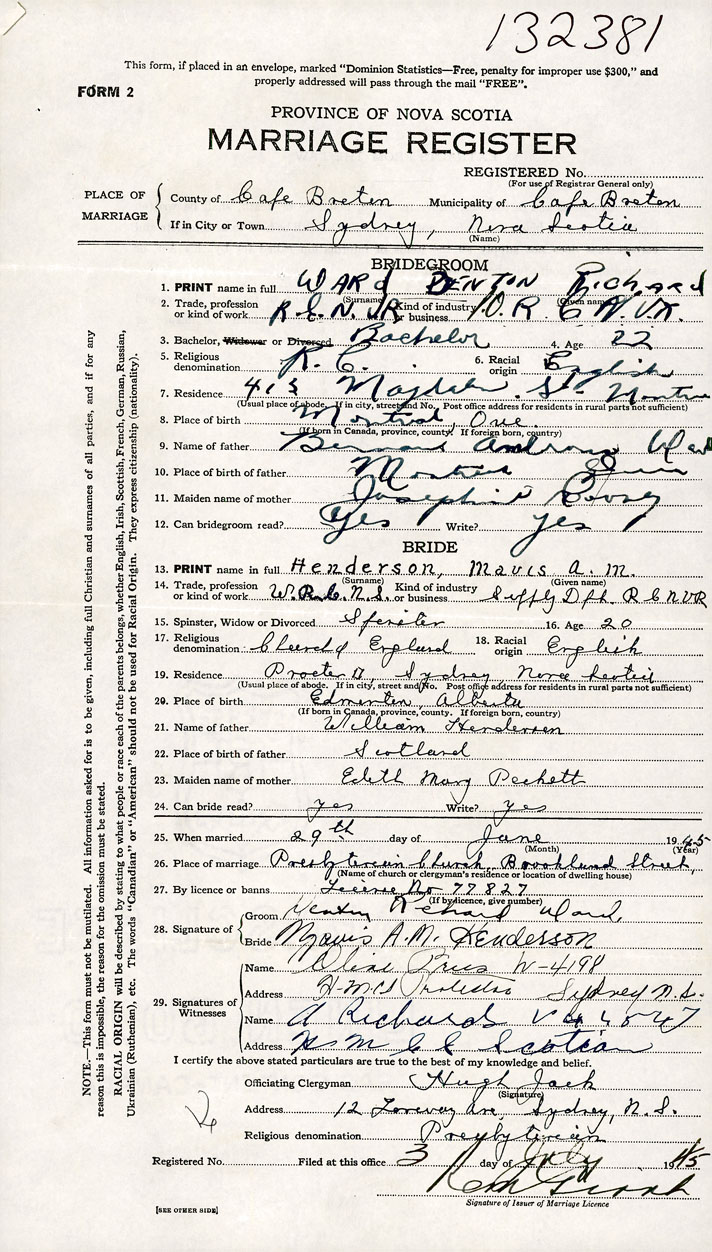 132381
This form, if placed in an envelope, marked "Dominion Statistics—Free, penalty for improper use $300," and
properly addressed will pass through the mail "FREE".
FORM 2
PROVINCE OF NOVA SCOTIA
MARRIAGE REGISTER
REGISTERED No.
(For use of Registrar General only)
PLACE OF MARRIAGE
County of Cape Breton Municipality of Cape Breton
If in City or Town Sydney, Nova Scotia
(Name)
BRIDEGROOM
1. PRINT name in full WARD DENTON RICHARD
(Surname) (Given name)
2. Trade, profession or kind of work Kind of industry or business
3. Bachelor, Widower or Divorced Bachelor 4. Age 22
5. Religious denomination R.C. 6. Racial origin English
7. Residence St.
(Usual place of abode. If in city, street and No. Post office address for residents in rural parts not sufficient)
8. Place of birth Montreal, Que.
(If born in Canada, province, county. If foreign born, country)
9. Name of father Ward
10. Place of birth of father Montreal
11. Maiden name of mother Josephine
12. Can bridegroom read? Yes Write? yes
BRIDE
13. PRINT name in full Henderson, Mavis A. M.
(Surname) (Given name)
14. Trade, profession or kind of work W.R.C.N.S. Kind of industry or business Supply Dpt. RCNVR
15. Spinster, Widow or Divorced Spinster 16. Age 20
17. Religious denomination Church of England 18. Racial origin English
19. Residence Sydney Nova Scotia
(Usual place of abode. If in city, street and No. Post office address for residents in rural parts not sufficient)
20. Place of birth Edmonton, Alberta
(If born in Canada, province, county. If foreign born, country)
21. Name of father William Henderson
22. Place of birth of father Scotland
23. Maiden name of mother Edith Mary Peckett
24. Can bride read? yes Write? yes
25. When married 29th day of June 1945
(Month) (Year)
26. Place of marriage Presbyterian Church, Brookland Street,
(Name of church or clergyman's residence or location of dwelling house)
27. By licence or banns Licence No 77827
(If by licence, give number)
28. Signature of Groom Richard Ward
Bride Mavis A.M. Henderson
29. Signatures of Witnesses
Name W-4198
Address Sydney N.S.
Name A Richards
Address Scotian
I certify the above stated particulars are true to the best of my knowledge and belief.
Officiating Clergyman Hugh Jack
(Signature)
Address 12 Ave, Sydney, N.S.
Religious denomination Presbyterian
Registered No. Filed at this office 3 day of July 1945
Signature of Issuer of Marriage Licence
[SEE OTHER SIDE]
NOTE.—This form must not be mutilated. All information asked for is to be given, including full Christian and surnames of all parties, and if for any
reason this is impossible, the reason for the omission must be stated.
RACIAL ORIGIN will be described by stating to what people or race each of the parents belongs, whether English, Irish, Scottish, French, German, Russian,
Ukrainian (Ruthenian), etc. The words "Canadian" or "American" should not be used for Racial Origin. They express citizenship (nationality).